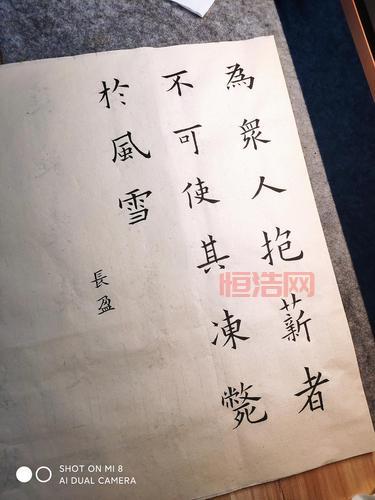 為衆人抱薪者
不可使其凍斃
於風雪
長盈
恒浩网
SHOT ON MI 8
AI DUAL CAMERA